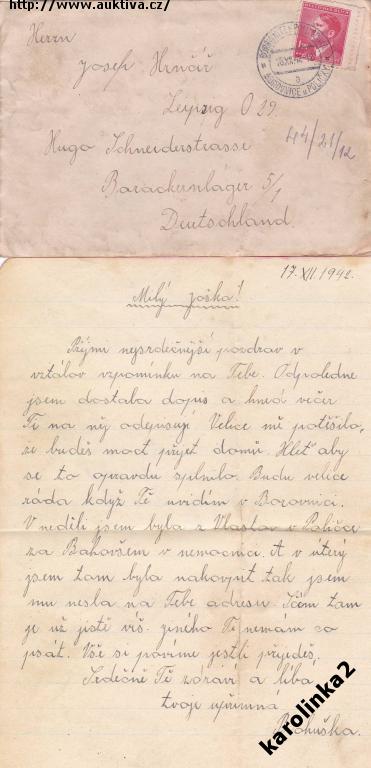 https://www.auktiva.cz/
Herrn
Josef Hrnčíř
Leipzig O 29.
Hugo Schneiderstrasse
Barackenlager 5/1
Deutschland.
44/21/12
BOROVNICE u POLIČKY
17. XII. 1942.
Milý Joška!
Přijmi nejsrdečnější pozdrav v
vztálov vzpomínku na Tebe. Odpoledne
jsem dostala dopis a hned večer
Ti na něj odepisuji. Velice mě potěšilo,
že budeš moct přijet domů. Hleť aby
se to opravdu splnilo. Budu velice
ráda když Tě uvidím v Borovnici.
V neděli jsem byla z Vlastov v Poličce
za Bahovšem v nemocnici. A v úterý
jsem tam byla nakoupit tak jsem
mu nesla na Tebe adresu. Sám tam
je už jistě víš. jiného Ti nemám co
psát. Vše si povíme jestli přijedeš,
Srdečně Tě zdraví a líbá
tvoje upřímná
Bohuška.
karolinka2